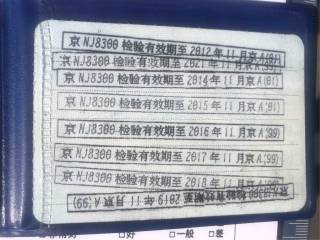 京NJ8300检验有效期至2012年11月京A(01)
京NJ8300检验有效期至2021年11月京A(99)
京NJ8300检验有效期至2014年11月京A(01)
京NJ8300检验有效期至2015年11月京A(01)
京NJ8300检验有效期至2016年11月京A(99)
京NJ8300检验有效期至2017年11月京A(99)
京NJ8300检验有效期至2018年11月京A(99)
京NJ8300检验有效期至2019年11月京A(99)
□好 □一般 □差